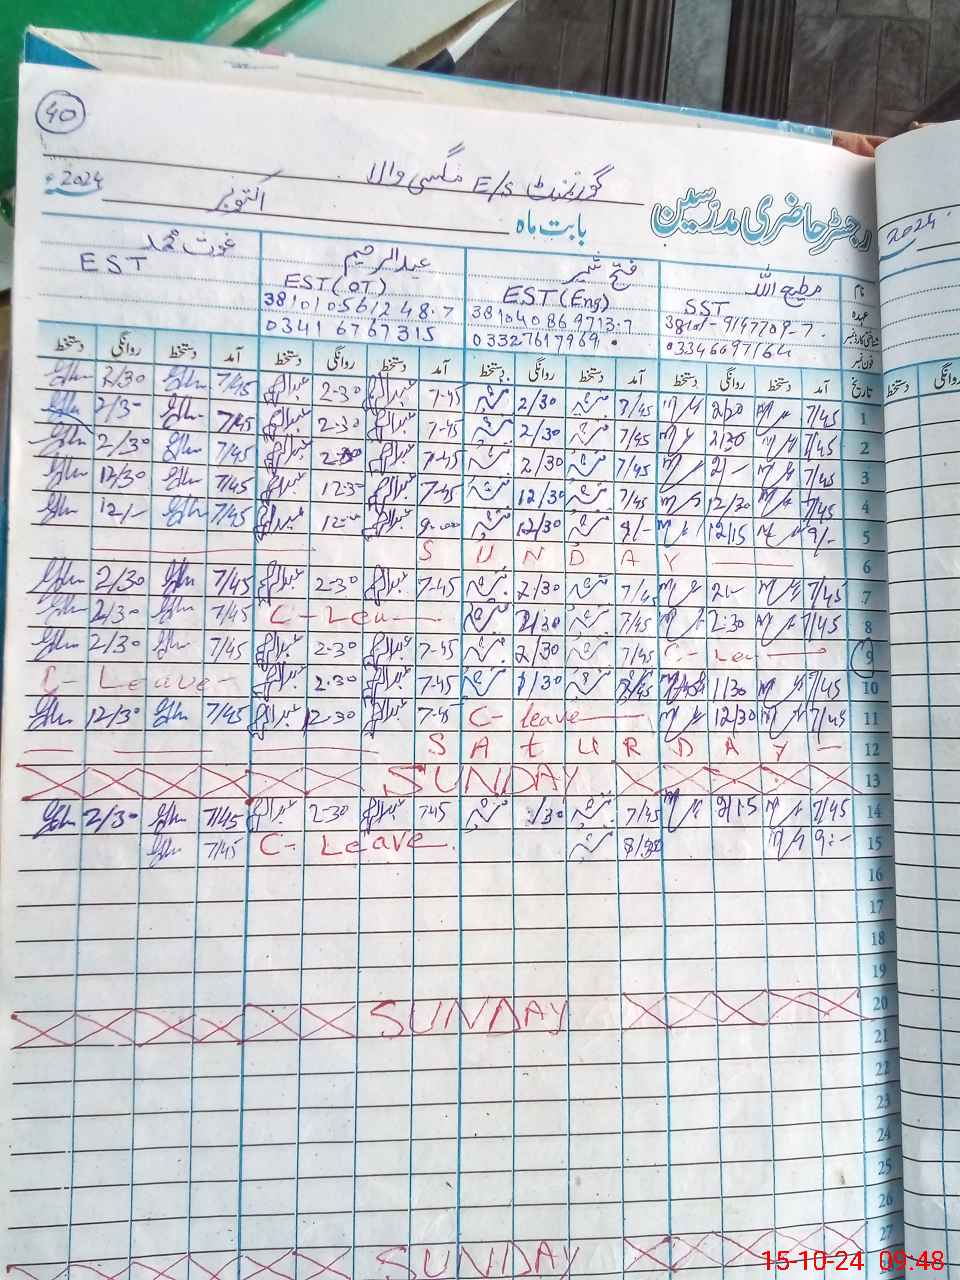 40
گورنمنٹ E/S مگسی والا
رجسٹر حاضری مدرسین بابت ماہ اکتوبر 2024ء
2024
نام مطیع اللہ فتح شیر عبدالرحیم غوث محمد
عہدہ SST EST (Eng) EST (OT) EST
شناختی کارڈ نمبر 38101-9147709-7 381040869713-7 381010561248-7
فون نمبر 03346697164 03327617969 03416767315
تاریخ آمد دستخط روانگی دستخط آمد دستخط روانگی دستخط آمد دستخط روانگی دستخط آمد دستخط روانگی دستخط
1 7/45 2/30 7-45 2-30 7/45 2/30
2 7/45 7/45 2/30 7-45 2-30 7/45
3 7/45 7/45 2/30 7-45 7/45 2/30
4 7/45 12/30 7/45 12/30 7-45 7/45 12/30
5 9/- 12/15 12/30 7/45 12/-
6 SUNDAY
7 7/45 7/45 2/30 7-45 2-30 7/45 2/30
8 7/45 2:30 7/45 2/30 C-Leave 7/45 2/30
9 C-Leave 7/45 2/30 7-45 2-30 7/45 2/30
10 7/45 1/30 7-45 2-30 C-Leave
11 7/45 12/30 C-leave 7-45 12-30 7/45 12/30
12 SAtURDAY
13 SUNDAY
14 7/45 2/15 7/45 7-45 2-30 7/45 2/30
15 9:- C-Leave 7/45
16
17
18
19
20 SUNDAY
21
22
23
24
25
26
27 SUNDAY
15-10-24 09:48